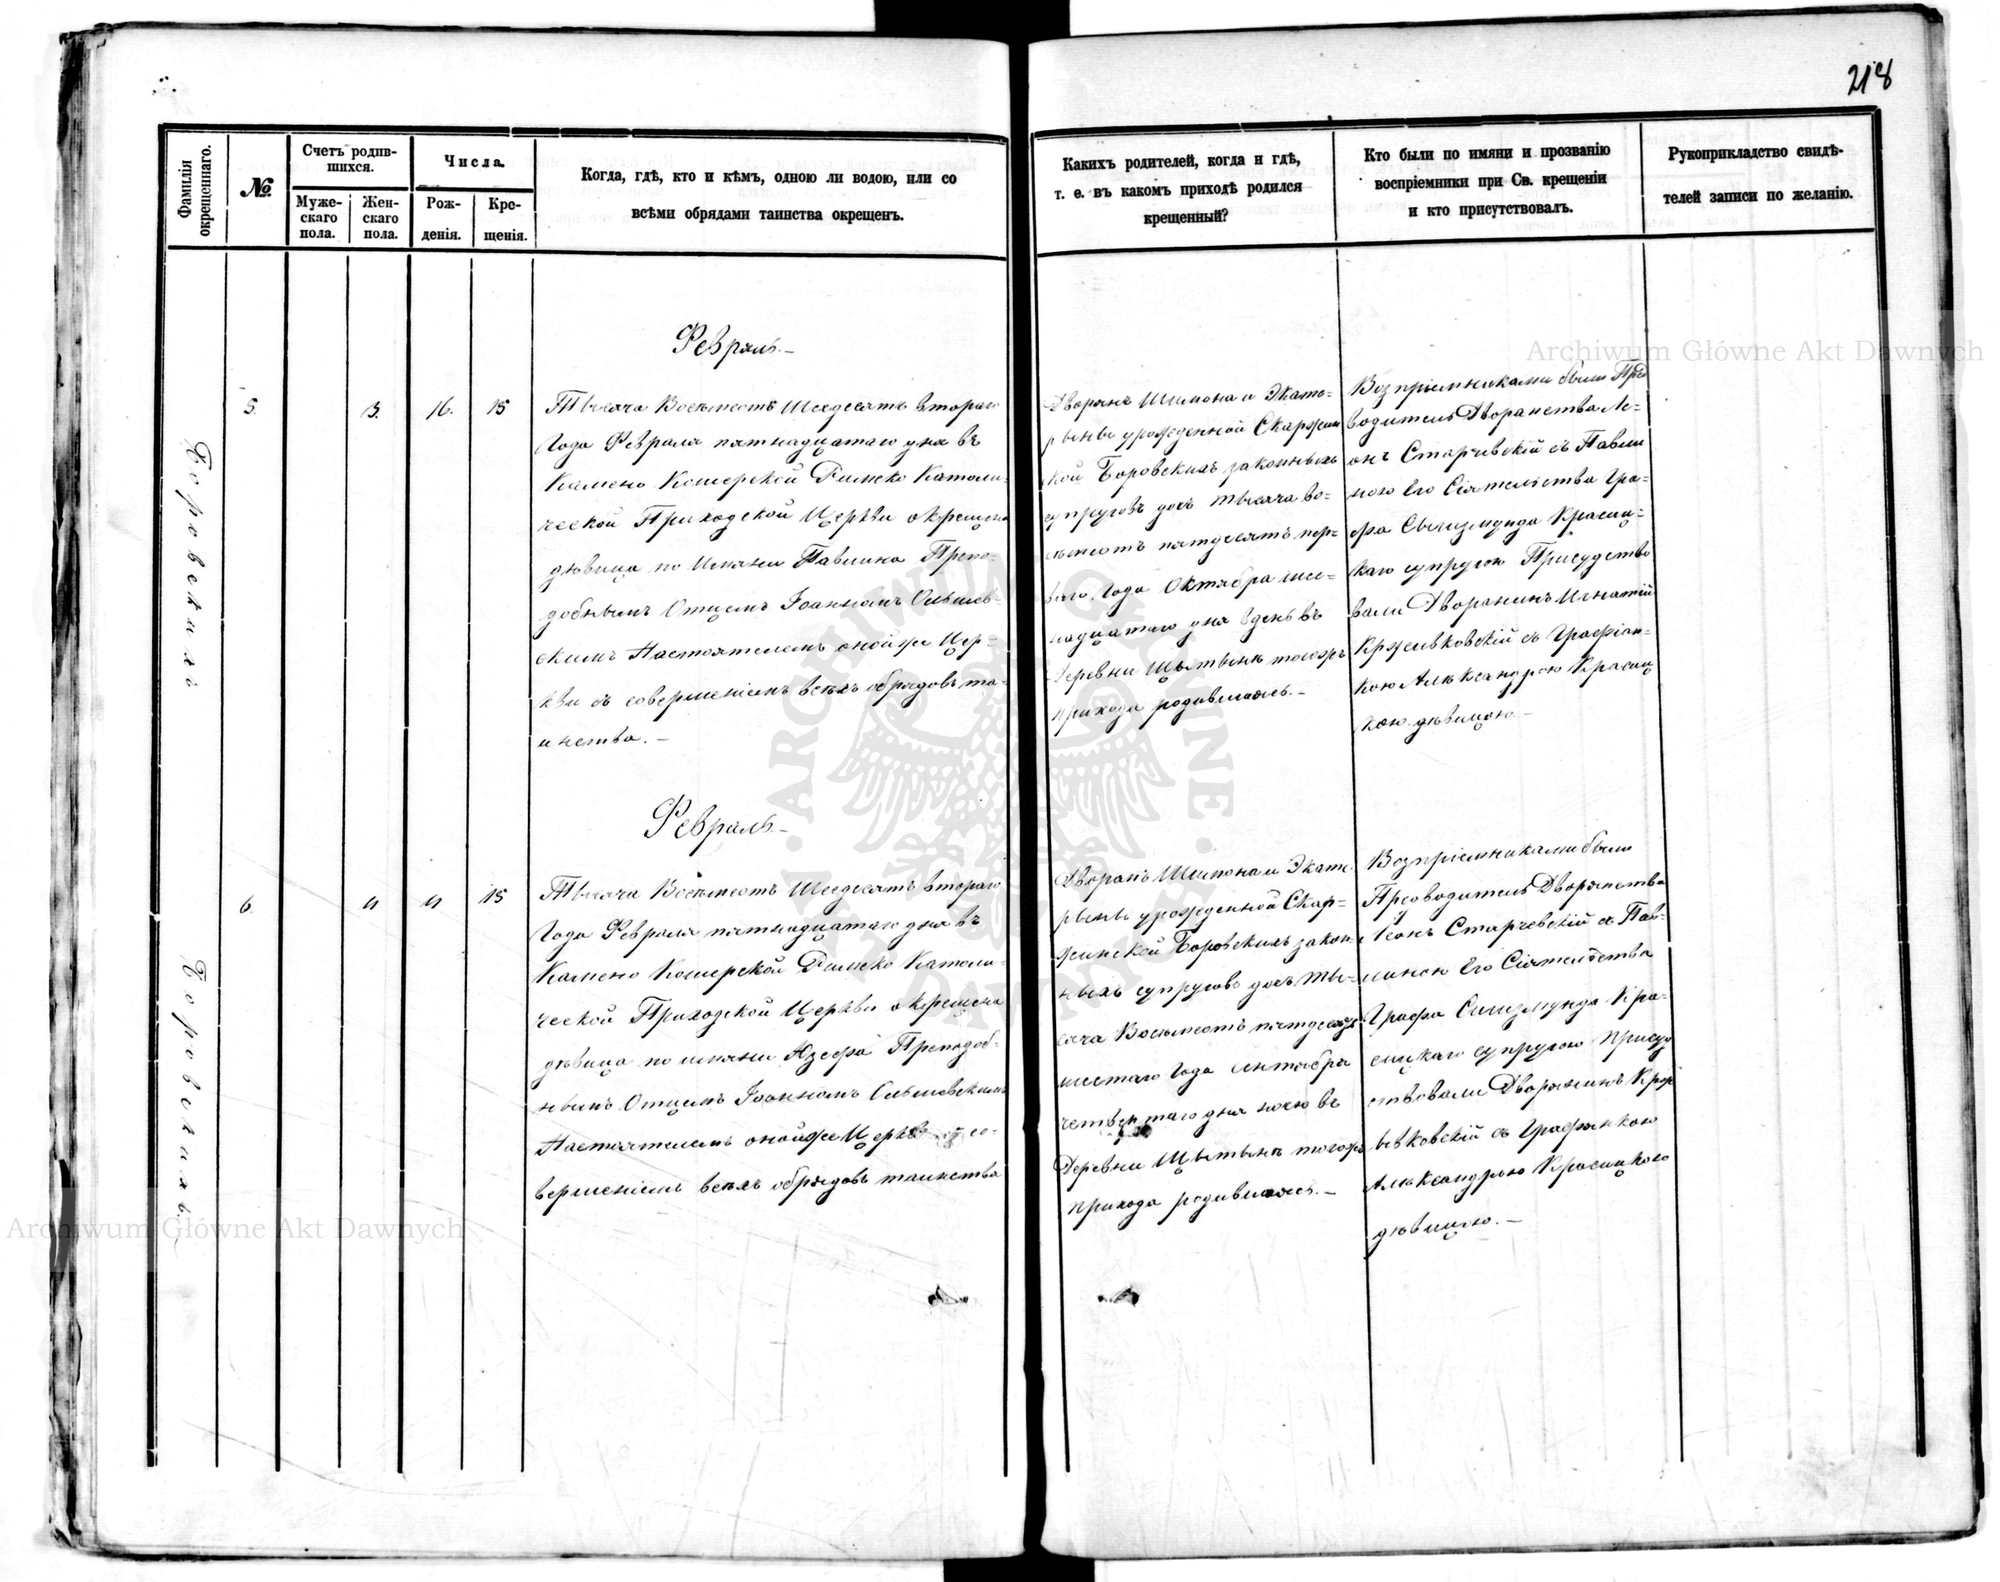 218
Фамилія окрещеннаго.
№.
Счетъ родив-
шихся.
Муже-
скаго
пола.
Жен-
скаго
пола.
Числа.
Рож-
денія.
Кре-
щенія.
Когда, гдѣ, кто и кѣмъ, одною ли водою, или со
всѣми обрядами таинства окрещенъ.
Какихъ родителей, когда и гдѣ,
т. е. въ какомъ приходѣ родился
крещенный?
Кто были по имяни и прозванію
воспріемники при Св. крещеніи
и кто присутствовалъ.
Рукоприкладство свидѣ-
телей записи по желанію.
Боровскихъ
5.
3.
16.
15
Февраль.-
Тысяча Восѣмсотъ Шедесятъ втораго
Года Февраля пятнадцатаго дня въ
Камено Кошерской Римско Католи-
ческой Приходской Церкви окрещена
дѣвица по Имяни Павлина Препо-
добнымъ Отцемъ Іоанномъ
скимъ Настоятелемъ онойже Цер-
кви съ совершеніемъ всѣхъ обрядовъ та-
инства.-
Дворянъ Шимона и Экате-
рыны урожденной Скаржин
кой Боровскихъ законныхъ
супруговъ дочь тысяча во-
сѣмсотъ пятдесятъ пер-
ваго Года Октября шес-
надцатаго дня въ
Деревни Щытынь тогожъ
прихода родившаясь.-
Возпріемниками были Пред
водитель Дворанства Ле-
онъ Старчевскій съ Павли
ною Его Сіятельства Гра-
фа Сыгизмунда Красиц-
каго супругою Присудство
вали Дворанинъ Игнатій
съ Графіан-
кою Алѣксандрою Красиц
кою дѣвицою.-
Боровскихъ
6.
4
4
15
Февраль.-
Тысяча Восѣмсотъ Шедесятъ втораго
Года Февраля пятнадцатаго дня въ
Камено Кошерской Римско Католи-
ческой Приходской Церкви окрещена
дѣвица по имяни Юзефа Преподоб-
нымъ Отцемъ Іоанномъ
Настоятелемъ онойже Церкви со-
вершеніемъ всѣхъ обрядовъ таинства
Дворанъ Шимона и Экате
рыны урожденной Скар-
жинской Боровскихъ закон-
ныхъ супруговъ дочь ты-
сяча Восѣмсотъ пятдесятъ
шестаго Года сентября
четвертаго дня ночю въ
Деревни Щытынь тогожъ
прихода родившаясь.-
Возпріемниками были
Предводитель Дворянства
Леонъ Старчевскій съ Пав-
линою Его Сіятельства
Графа Сигизмунда Кра-
сицкаго супругою присуд
ствовали Дворянинъ
съ Графянкою
Алѣксандрою Красицкого
дѣвицою.-
Archiwum Główne Akt Dawnych
Archiwum Główne Akt Dawnych